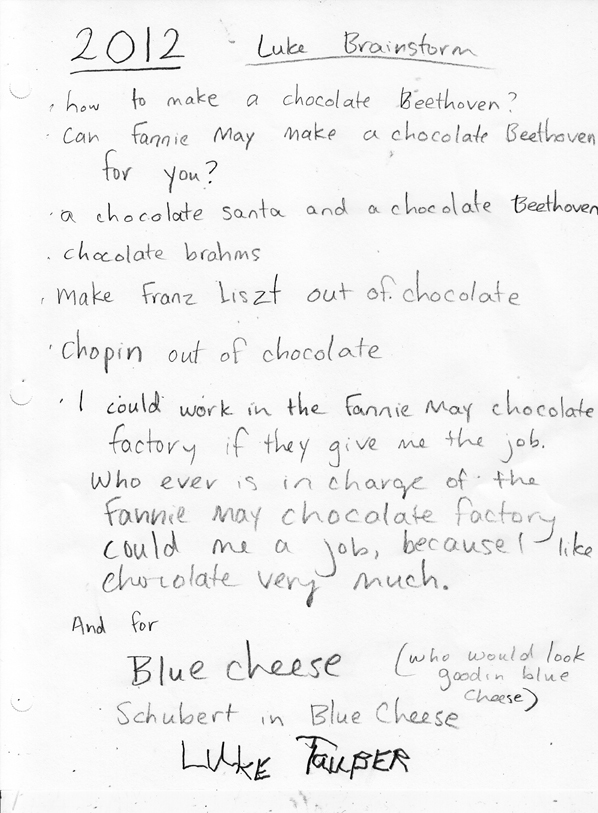 2012 - Luke Brainstorm
· how to make a chocolate Beethoven?
· Can Fannie May make a chocolate Beethoven
for you?
· a chocolate santa and a chocolate Beethoven
· chocolate brahms
· Make Franz Liszt out of chocolate
· Chopin out of chocolate
· I could work in the Fannie May chocolate
factory if they give me the job.
Who ever is in charge of the
Fannie May chocolate factory
could me a job, because I like
chocolate very much.
And for
Blue cheese (who would look
good in blue
cheese)
Schubert in Blue Cheese
LUKE TauBER